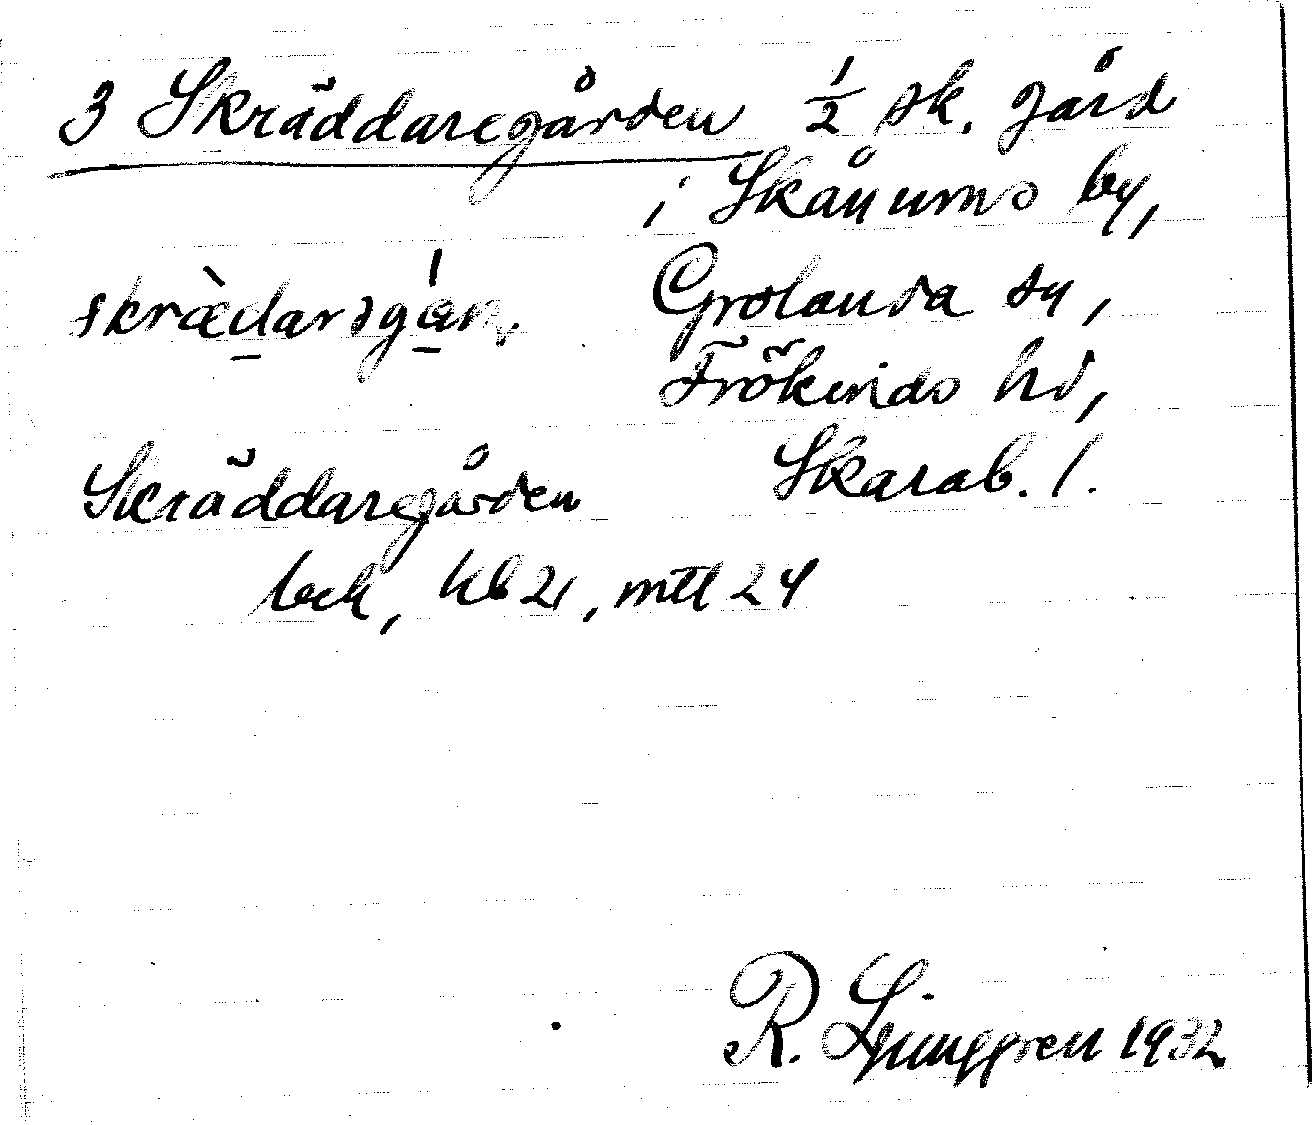 3 Skräddaregården ½ sk. gård
i Skånums by,
skrædarəgán. Grolanda sn,
Frökinds hd,
Skräddaregården Skarab. l.
beck, kb 21, mtl 24
R. Ljunggren 1932